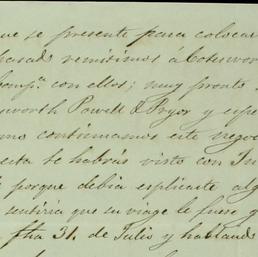 ue se presente para colocar
pasado remitimos á Coteswor
Compª. con ellos; muy pronto
sworth Powell & Pryor y espe
mo continuamos este nego
esta te habrás visto con Ju
porque debia esplicarte alg
sentiria que su viage le fuese g
fha 31. de Julio y habland